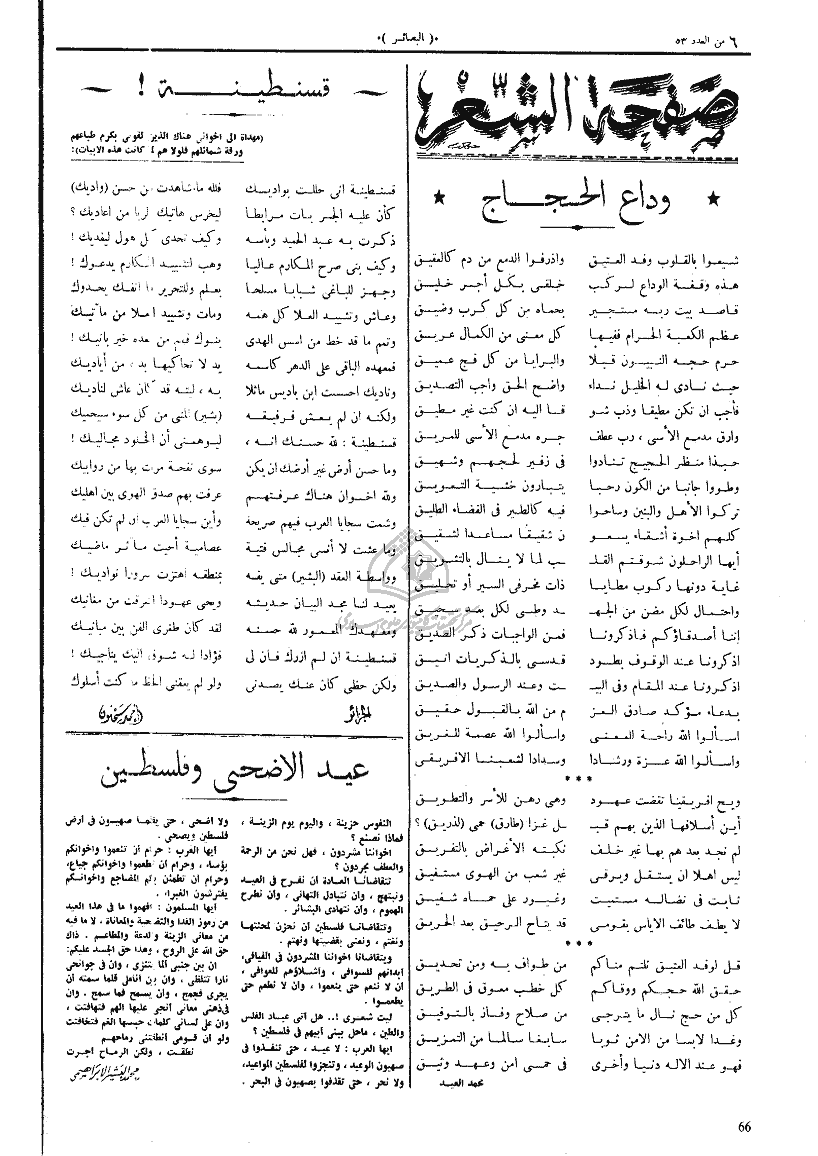 ٦ من العدد ٥٣
•( البصائر )•
صفحة الشعر
وداع الحجاج
شيعوا بالقلوب وفد العتيق واذرفوا الدمع من دم كالعقيق
هذه وقفة الوداع لركب خلفى بكل أجر خليق
قاصد بيت ربه مستجير بحماه من كل كرب وضيق
عظم الكعبة الحرام ففيها كل معنى من الكمال عريق
حرم حجه النبيون قبلا والبرايا من كل فج عميق
حيث نادى له الخليل نداء واضح الحق واجب التصديق
فأجب ان تكن مطيقا وذب شو قا اليه ان كنت غير مطيق
وارق مدمع الأسى ، رب عطف جره مدمع الأسى للمريق
حبذا منظر الحجيج تنادوا فى زفير لحجهم وشهيق
وطووا جانبا من الكون رحبا يتبارون خشية التعويق
تركوا الأهل والبنين وساحوا فيه كالطير فى الفضاء الطليق
كلهم اخوة أشقاء يسعو ن شقيقا مساعدا لشقيق
أيها الراحلون شوقتم القلـ ـب لما لا ينال بالتشويق
غاية دونها ركوب مطايا ذات مخرفى السير أو تحليق
واحتمال لكل مضن من الجهـ ـد وطي لكل بعد سحيق
إننا أصدقاؤكم فاذكرونا فمن الواجبات ذكر الصديق
اذكرونا عند الوقوف بطود قدسى بالذكريات انيق
اذكرونا عند المقام وفى البيـ ـت وعند الرسول والصديق
بدعاء مؤكد صادق العز م من الله بالقبول حقيق
اسألوا الله راحة المعنى واسألوا الله عصمة للفريق
واسألوا الله عزة ورشادا وسدادا لشعبنا الافريقى
***
ويح افريقيا تقضت عهود وهى رهن للأسر والتطويق
أين أسلافها الذين بهم قبـ ـل غزا (طارق) حمى (لذريق) ؟
لم نجد بعد هم بها غير خلف نكبته الأغراض بالتفريق
ليس اهلا ان يستقل ويرقى غير شعب من الهوى مستفيق
ثابت فى نضاله مستميت وغيور على حماه شفيق
لا يطف طائف الاياس بقومى قد يتاح الرحيق بعد الحريق
***
قل لوفد العتيق تلتم مناكم من طواف به ومن تحديق
حقق الله حجكم ووقاكم كل خطب معوق فى الطريق
كل من حج نال ما يترجى من صلاح وفاز بالتوفيق
وغدا لابسا من الامن ثوبا سابغا سالما من التمزيق
فهو عند الاله دنيا وأخرى فى حمى أمن وعهد وثيق
محمد العيد
قسنطينة !
(مهداة الى اخوانى هناك الذين لقونى بكرم طباعهم
ورقة شمائلهم فلولا هم لما كانت هذه الابيات):
قسنطينة انى حللت بواديك فلله ما شاهدت من حسن (واديك)
كأن عليه الجسر بات مرابطا ليخرس هاتيك الربا من اعاديك ؟
ذكرت به عبد الحميد وبأسه وكيف تحدى كل هول ليفديك !
وكيف بنى صرح المكارم عاليا وهب لتشييد المكارم يدعوك !
وجهز للباغى شبابا مسلحا بعلم وللتحرير ما انفك يحدوك
وعاش وتشييد العلا كل همه ومات وتشييد العلا من مآتيك
وتمم ما قد خط من اسس الهدى بنوك فهم من بعده خير بانيك !
فمعهده الباقى على الدهر كاسمه يد لا تحاكيها يد ، من أياديك
وناديك احسست ابن باديس ماثلا به ، ليته قد كان عاش لناديك
ولكنه ان لم يعش فرفيقه (بشير) المنى من كل سوء سيحميك
قسنطينة : لله حسنك انه ، ليوهمنى أن الخلود مجاليك !
وما حسن أرض غير أرضك ان يكن سوى نفحة مرت بها من روابيك
ولله اخوان هناك عرفتهم عرفت بهم صدق الهوى بين اهليك
وشمت سجايا العرب فيهم صريحة وأين سجايا العرب ان لم تكن فيك
وما عشت لا أنسى مجالس فتية عصامية أحيت مآثر ماضيك
وواسطة العقد (البشير) متى يفه بمنطقه اهتزت سرورا نواديك !
يعيد لنا مجد البيان حديثه ويحى عهودا اشرقت من مغانيك
ومعهدك المعمور لله حسنه لقد كان ظفرى الفن بين مبانيك
قسنطينة ان لم ازرك فان لى فؤادا له شوق اليك يناجيك !
ولكن حظى كان عنك يصدنى ولو لم يعقنى الحظ ما كنت أسلوك
الجزائر
أحمد سحنون
عيد الاضحى وفلسطين
النفوس حزينة ، واليوم يوم الزينة ،
فماذا نصنع ؟
اخواننا مشردون ، فهل نحن من الرحمة
والعطف مجردون ؟
تتقاضانا العادة ان نفرح فى العيد
ونبتهج ، وان نتبادل التهانى ، وان نطرح
الهموم ، وان نتهادى البشائر .
وتتقاضانا فلسطين ان نحزن لمحنتها
ونغتم ، ونعنى بقضيتها ونهتم .
ويتقاضانا اخواننا المشردون فى الفيافى،
أبدانهم للسوافى ، واشلاؤهم للعوافى ،
ان لا ننعم حتى ينعموا ، وان لا نطعم حتى
يطعموا !
ليت شعرى !.. هل أتى عباد الفلس
والطين ، ماحل ببنى أبيهم فى فلسطين ؟
ايها العرب : لا عيد ، حتى تنفذوا فى
صهيون الوعيد ، وتنجزوا لفلسطين المواعيد،
ولا نحر ، حتى تقذفوا بصهيون فى البحر .
ولا اضحى ، حتى يظمأ صهيون فى ارض
فلسطين ويضحى .
ايها العرب : حرام ان تنعموا واخوانكم
بؤساء ، وحرام ان تطعموا واخوانكم جياع،
وحرام ان تطمئن بكم المضاجع واخوانكم
يفترشون الغبراء .
ايها المسلمون : افهموا ما فى هذا العيد
من رموز الفدا والتضحية والمعاناة ، لا ما فيه
من معانى الزينة والدعة والمطاعم . ذاك
حق الله على الروح ، وهذا حق الجسد عليكم:
ان بين جنبى ألما يتنزى ، وان فى جوانحى
نارا تتلظى ، وان بين اناملى قلما سمته ان
يجرى فجمح ، وان يسمح فما سمح ، وان
فى ذهنى معانى أنحى عليها الهم فتهافتت ،
وان على لسانى كلمات حبسها الغم فتخافتت
ولو ان قومى أنطقتنى رماحهم
نطقت ، ولكن الرماح اجرت
محمد البشير الابراهيمى
66